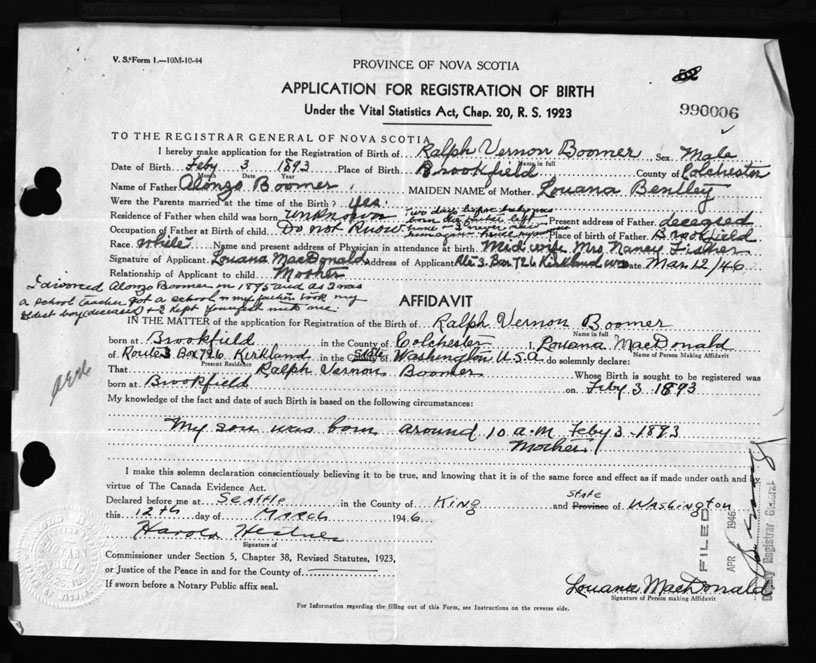 V. S. Form 1.—10M-10-44
PROVINCE OF NOVA SCOTIA
52
APPLICATION FOR REGISTRATION OF BIRTH
Under the Vital Statistics Act, Chap. 20, R. S. 1923
990006
TO THE REGISTRAR GENERAL OF NOVA SCOTIA
I hereby make application for the Registration of Birth of Ralph Vernon Boomer Sex Male
Name in full
Date of Birth Feby 3 1893 Place of Birth Brookfield County of Colchester
Month Date Year
Name of Father Alonzo Boomer. MAIDEN NAME of Mother. Louana Bentley
Were the Parents married at the time of the Birth? Yes.
two days before baby was
Residence of Father when child was born Unknown born his father left Present address of Father. deceased
home & I never saw
Occupation of Father at Birth of child. Do not Know him again Place of birth of Father. Brookfield
Race. White Name and present address of Physician in attendance at birth. Mid wife Mrs Nancy Fisher
Signature of Applicant. Louana MacDonald Address of Applicant Rte 3. Box 726 Kirkland Wn Date Mar. 12/46
Relationship of Applicant to child. Mother
I divorced Alonzo Boomer in 1895 and as I was
a school teacher got a school & my father took my
oldest boy (deceased) & I kept youngest with me.
AFFIDAVIT
IN THE MATTER of the application for Registration of the Birth of Ralph Vernon Boomer
Name in full
born at Brookfield in the County of Colchester I, Louana MacDonald
Name of Person Making Affidavit
of Route 3 Box 726 Kirkland in the County of State Washington U.S.A. do solemnly declare:
Present Residence
That Ralph Vernon Boomer Whose Birth is sought to be registered was
born at Brookfield on Feby 3 1893
My knowledge of the fact and date of such Birth is based on the following circumstances:
My son was born around 10 a.m Feby 3-1893
Mother
I make this solemn declaration conscientiously believing it to be true, and knowing that it is of the same force and effect as if made under oath and by
virtue of The Canada Evidence Act.
Declared before me at Seattle in the County of King and Province State of Washington
this 12th day of March 1946
Harold Hestnes
Signature of
Commissioner under Section 5, Chapter 38, Revised Statutes, 1923,
or Justice of the Peace in and for the County of
If sworn before a Notary Public affix seal.
FILED
APR 1946
Deputy Registrar General
Louana MacDonald
Signature of Person making Affidavit
For Information regarding the filling out of this Form, see Instructions on the reverse side.